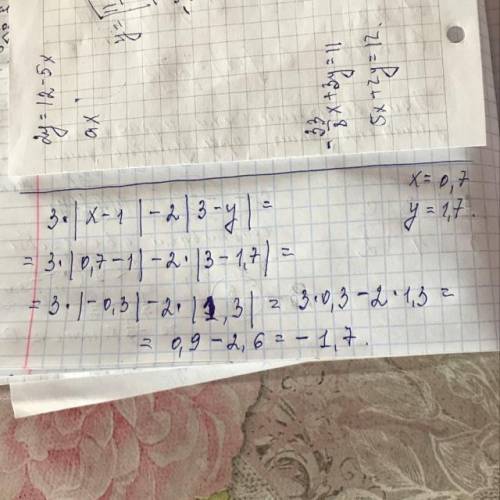 2y = 12 - 5x
9x
y =
- 33/8 x + 3y = 11
5x + 2y = 12.
x = 0,7
y = 1,7.
3·|x - 1| - 2|3 - y| =
= 3·|0,7 - 1| - 2·|3 - 1,7| =
= 3·|-0,3| - 2·|1,3| = 3·0,3 - 2·1,3 =
= 0,9 - 2,6 = -1,7.